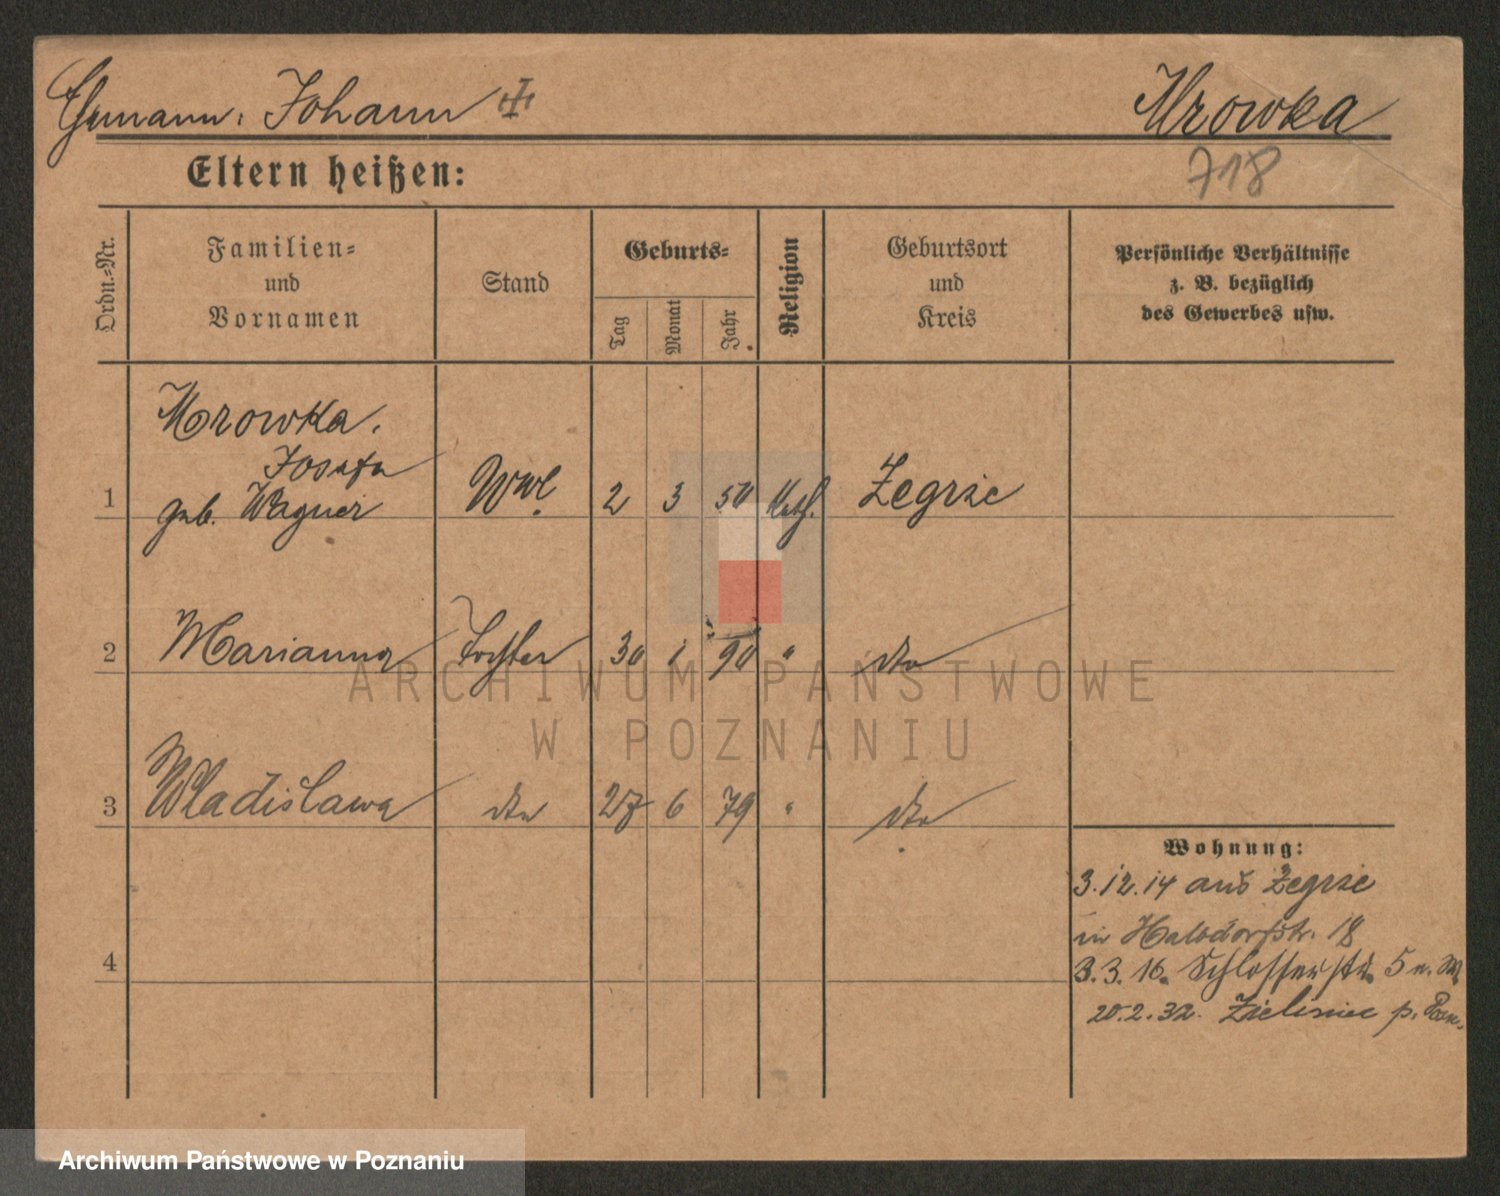 Ehemann: Johann Mrowka
718
Eltern heißen:
Ordn.-Nr.
Familien-
und
Vornamen
Stand
Geburts-
Tag
Monat
Jahr
Religion
Geburtsort
und
Kreis
Persönliche Verhältnisse
z. B. bezüglich
des Gewerbes usw.
Mrowka,
Josefa
1 geb. Wagner Wwe. 2 3 50 kath. Zegrze
2 Marianna Tochter 30 1 90 " dto
3 Wladislawa dto 27 6 79 " dto
4
Wohnung:
3.12.14 aus Zegrze
in Halbdorfstr. 18
3.3.16. Schlosserstr. 5 n. M
20.2.32. Zieliniec p. Pozn.
ARCHIWUM PAŃSTWOWE
W POZNANIU
Archiwum Państwowe w Poznaniu